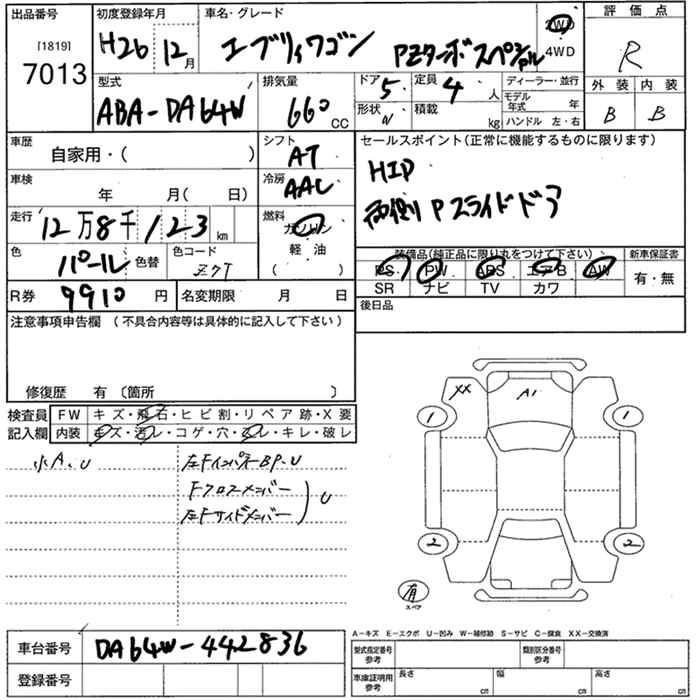 出品番号
[1819]
7013
初度登録年月
H26 12月
車名・グレード
エブリィワゴン PZターボスペシャル
2WD
4WD
評価点
R
外装 内装
B B
型式
ABA-DA64W
排気量
660 CC
ドア 5
定員 4 人
形状
積載 kg
ディーラー・並行
モデル年式 年
ハンドル 左・右
車歴
自家用・( )
シフト
AT
セールスポイント(正常に機能するものに限ります)
HID
両側Pスライドドア
車検
年 月( 日)
冷房
AAC
走行
12万8千123km
燃料
ガソリン
軽・油
( )
色
パール 色替
色コード
Z7T
装備品(純正品に限り丸をつけて下さい)
PS PW ABS エアB AW
SR ナビ TV カワ
新車保証書
有・無
R券
9910円
名変期限 月 日
後日品
注意事項申告欄(不具合内容等は具体的に記入して下さい)
修復歴 有〔箇所 〕
検査員記入欄
FW キズ・飛石・ヒビ割・リペア跡・X要
内装 キズ・汚レ・コゲ・穴・スレ・キレ・破レ
小A、U
左FインパネBP、U
Fクロスメンバー
左Fサイドメンバー
U
XX
A1
1
1
2
2
有
スペア
A-キズ E-エクボ U-凹み W-補修跡 S-サビ C-腐食 XX-交換済
車台番号
DA64W-442836
登録番号
型式指定番号 参考
類別区分番号 参考
車庫証明用 参考
長さ cm
幅 cm
高さ cm